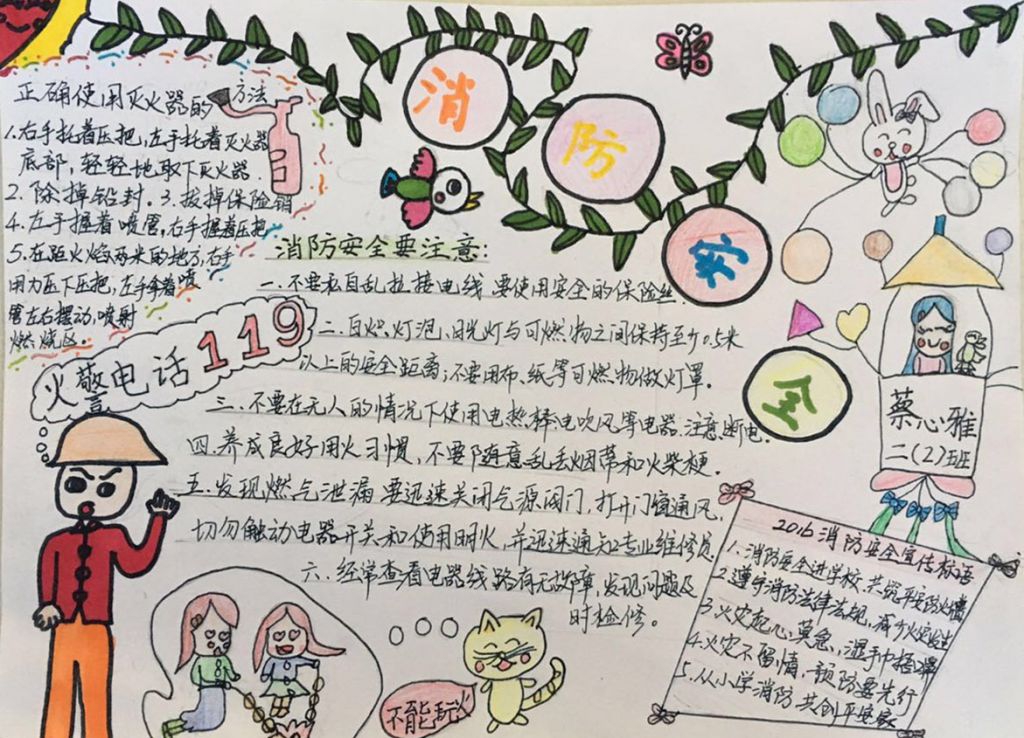 正确使用灭火器的方法
1.右手托着压把,左手托着灭火器
底部,轻轻地取下灭火器.
2.除掉铅封.3.拔掉保险销
4.左手握着喷管,右手握着压把
5.在距火焰两米的地方,右手
用力压下压把,左手拿着喷
管左右摆动,喷射
燃烧区.
火警电话119
消
防
安
全
消防安全要注意:
一.不要私自乱拉接电线.要使用安全的保险丝.
二.白炽灯泡、日光灯与可燃物之间保持至少0.5米
以上的安全距离;不要用布、纸等可燃物做灯罩.
三.不要在无人的情况下使用电热棒电吹风等电器.注意断电.
四.养成良好用火习惯,不要随意乱丢烟蒂和火柴梗.
五.发现燃气泄漏要迅速关闭气源阀门,打开门窗通风,
切勿触动电器开关和使用明火,并迅速通知专业维修员.
六.经常查看电器线路有无故障,发现问题及
时检修。
蔡心雅
二(2)班
2016消防安全宣传标语
1.消防安全进学校.共筑平安防火墙
2.遵守消防法律法规,减少火灾发生
3.火灾起心莫急,湿手巾捂口鼻
4.火灾不留情,预防要先行
5.从小学消防共创平安家
不能玩火